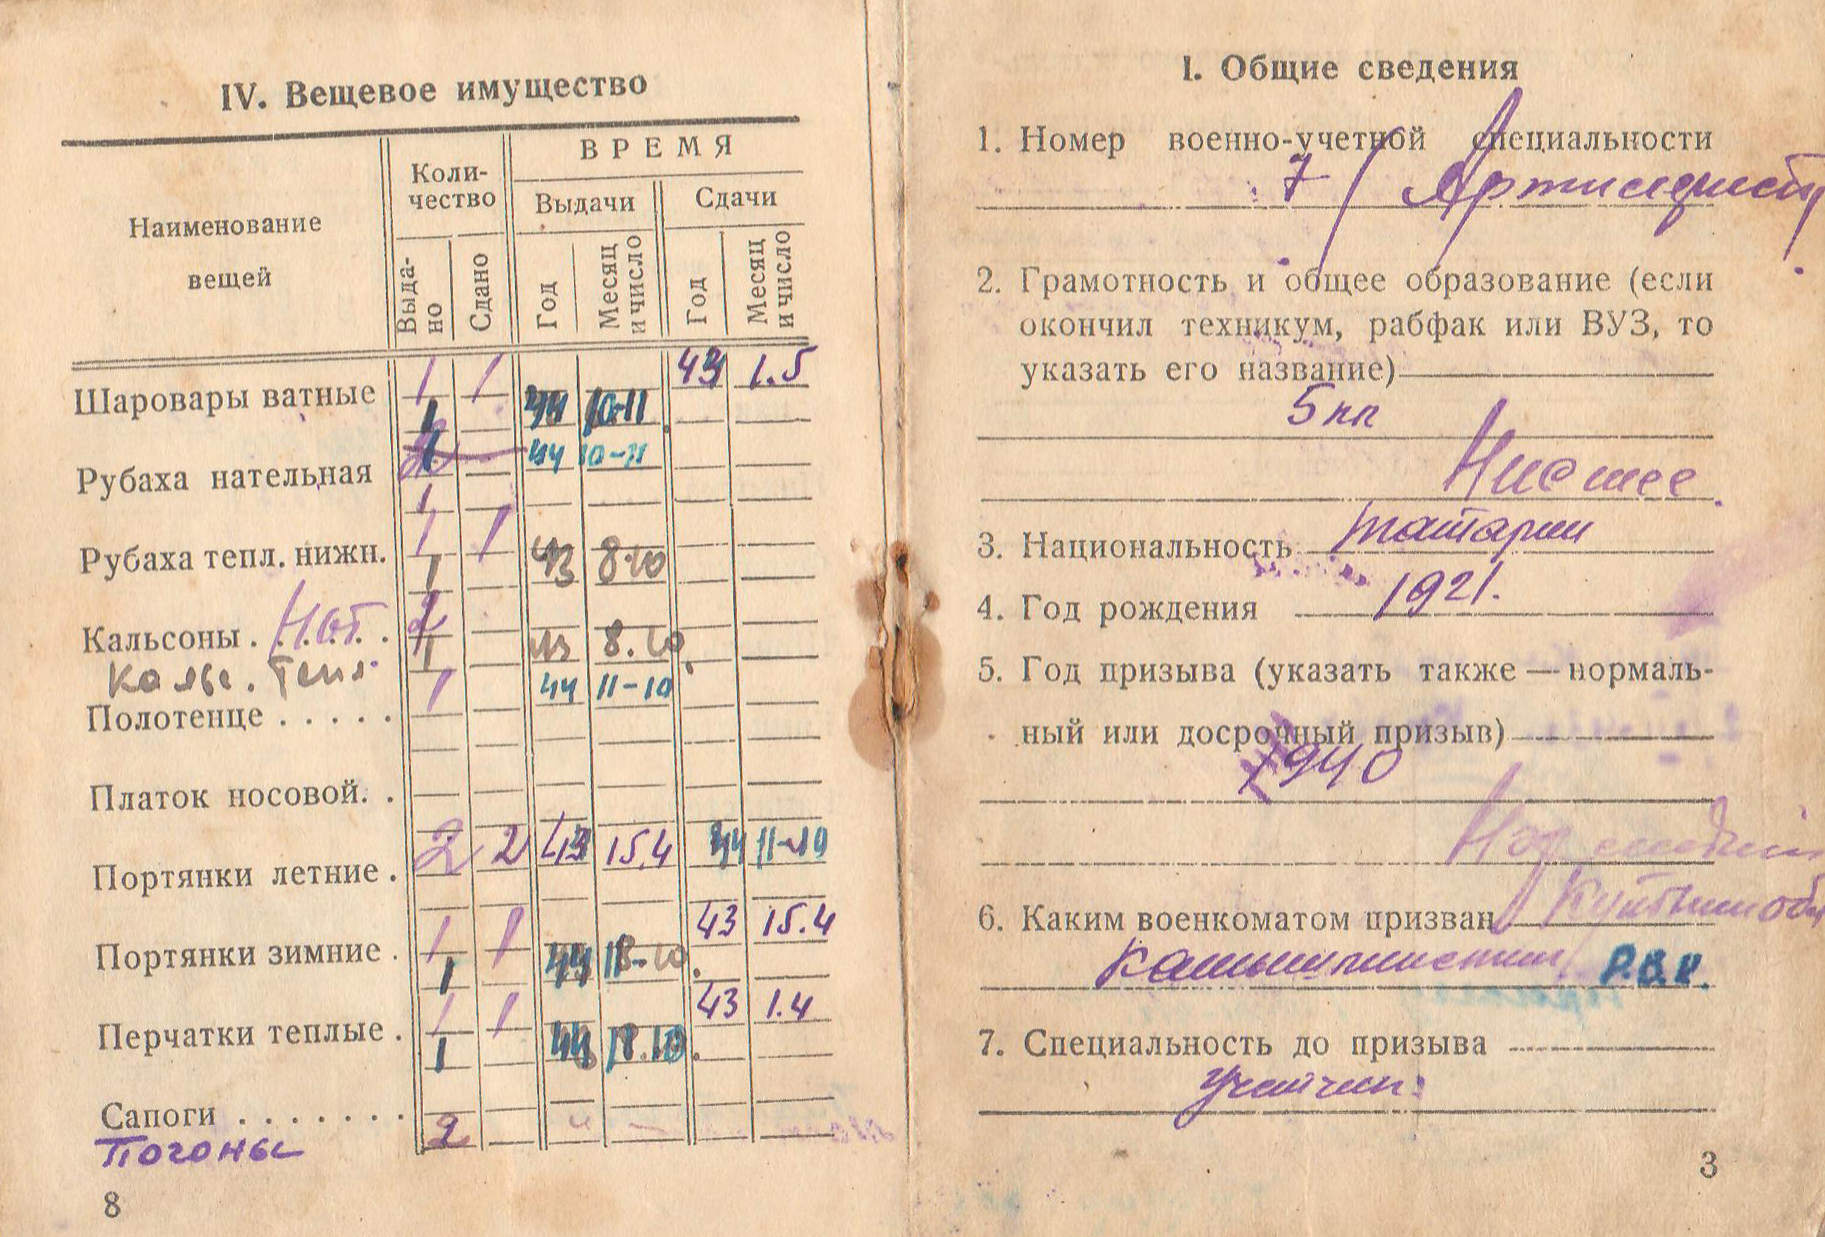 IV. Вещевое имущество
Наименование вещей
Коли-
чество
ВРЕМЯ
Выдачи
Сдачи
Выда-
но
Сдано
Год
Месяц
и число
Год
Месяц
и число
Шаровары ватные 1 1 43 1.5
1 44 10-11
Рубаха нательная 44 10-11
1
Рубаха тепл. нижн. 1 1
1 43 8.10
Кальсоны . Нат. 2
1 43 8.10
Кальс. тепл.
Полотенце . . . . . 1 44 11-10
Платок носовой. .
Портянки летние . 2 2 43 15.4 44 11-10
Портянки зимние . 1 1 43 15.4
1 44
Перчатки теплые . 1 1 43 1.4
1 44
Сапоги . . . . . . .
Погоны 2
8
I. Общие сведения
1. Номер военно-учетной специальности
7 / Артиллерист
2. Грамотность и общее образование (если
окончил техникум, рабфак или ВУЗ, то
указать его название)
5 кл
Низшее
3. Национальность татарин
4. Год рождения 1921.
5. Год призыва (указать также — нормаль-
ный или досрочный призыв)
1940
6. Каким военкоматом призван Куйбыш обл
Р.В.К.
7. Специальность до призыва
3